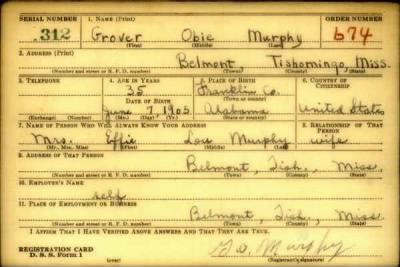 SERIAL NUMBER 1. NAME (Print) ORDER NUMBER
312 Grover Obie Murphy 674
(First) (Middle) (Last)
2. ADDRESS (Print)
Belmont Tishomingo, Miss.
(Number and street or R. F. D. number) (Town) (County) (State)
3. TELEPHONE 4. AGE IN YEARS 5. PLACE OF BIRTH 6. COUNTRY OF CITIZENSHIP
35 Franklin Co.
DATE OF BIRTH (Town or county)
June 7, 1905 Alabama United States
(Exchange) (Number) (Mo.) (Day) (Yr.) (State or country)
7. NAME OF PERSON WHO WILL ALWAYS KNOW YOUR ADDRESS 8. RELATIONSHIP OF THAT PERSON
Mrs. Effie Lou Murphy wife
(Mr., Mrs., Miss) (First) (Middle) (Last)
9. ADDRESS OF THAT PERSON
Belmont, Tish., Miss.
(Number and street or R. F. D. number) (Town) (County) (State)
10. EMPLOYER'S NAME
self
11. PLACE OF EMPLOYMENT OR BUSINESS
Belmont, Tish., Miss.
(Number and street or R. F. D. number) (Town) (County) (State)
I AFFIRM THAT I HAVE VERIFIED ABOVE ANSWERS AND THAT THEY ARE TRUE.
REGISTRATION CARD
D. S. S. Form 1 (over) G. O. Murphy
(Registrant's signature)